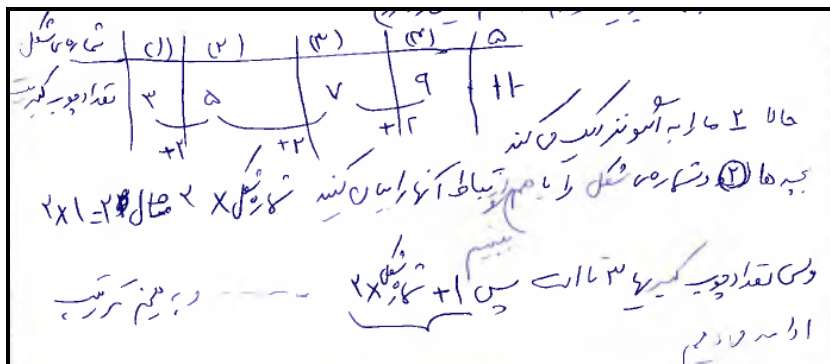 شماره‌ی شکل | (۱) | (۲) | (۳) | (۴) | ۵
تعداد چوب کبریت | ۳ | ۵ | ۷ | ۹ | ۱۱
+۲ +۲ +۲
حالا ۲ ما را به الگو نزدیک می کند
بچه ها ② و شماره‌ی شکل را با هم ببینیم ارتباط آنها را بیان کنید شماره شکل × ۲ مثال ۲=۱×۲
ولی تعداد چوب کبریتها ۳ تا است پس ۱ + شماره شکل × ۲ ------ و به همین ترتیب
ادامه می دهیم